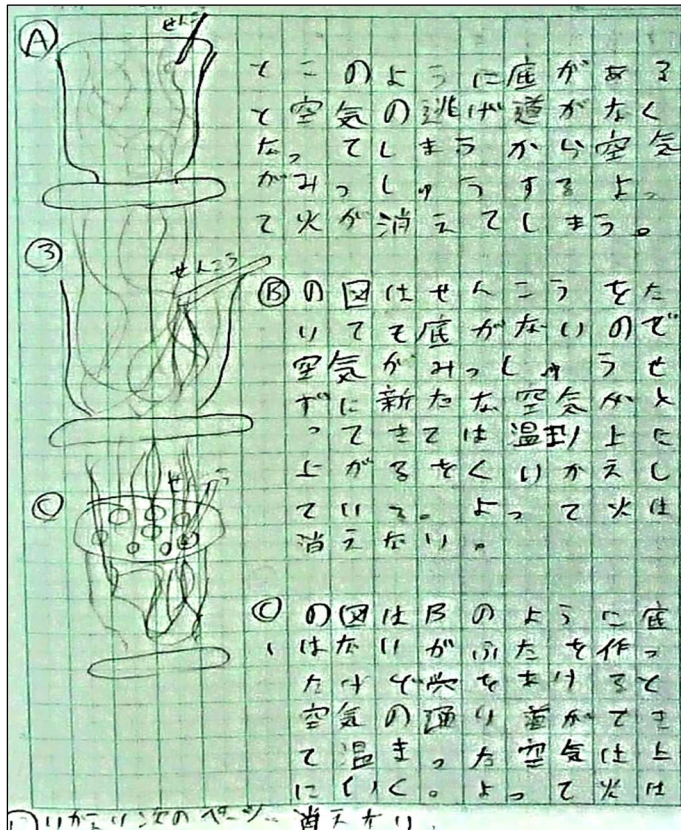 Ⓐ
せんこ
てこのように底がある
と空気の逃げ道がなく
なってしまうから空気
がみっしゅうするよっ
て火が消えてしまう。
③
せんこう
Ⓑの図はせんこうをた
いても底がないので
空気がみっしゅうせ
ずに新たな空気がと
ってきては温まり上に
上がるをくりかえし
ている。よって火は
消えない。
Ⓒ
せんこう
Ⓒの図はBのように底
はないがふたを作っ
たけど穴をあけると
空気の通り道ができ
て温まった空気は上
にいく。よって火は
消えない。
ふりかえり次のページ